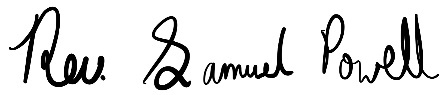 Rev. Samuel Powell